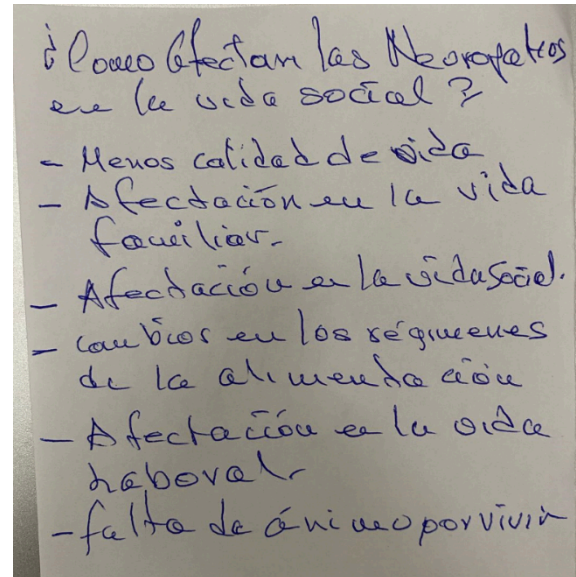 ¿Como Afectan las Neoropatias
en la vida social?
- Menos calidad de vida
- Afectación en la vida
familiar.
- Afectación en la vida Social.
- cambios en los régimenes
de la alimentación
- Afectación en la vida
Laboral.
- falta de ánimo por vivir